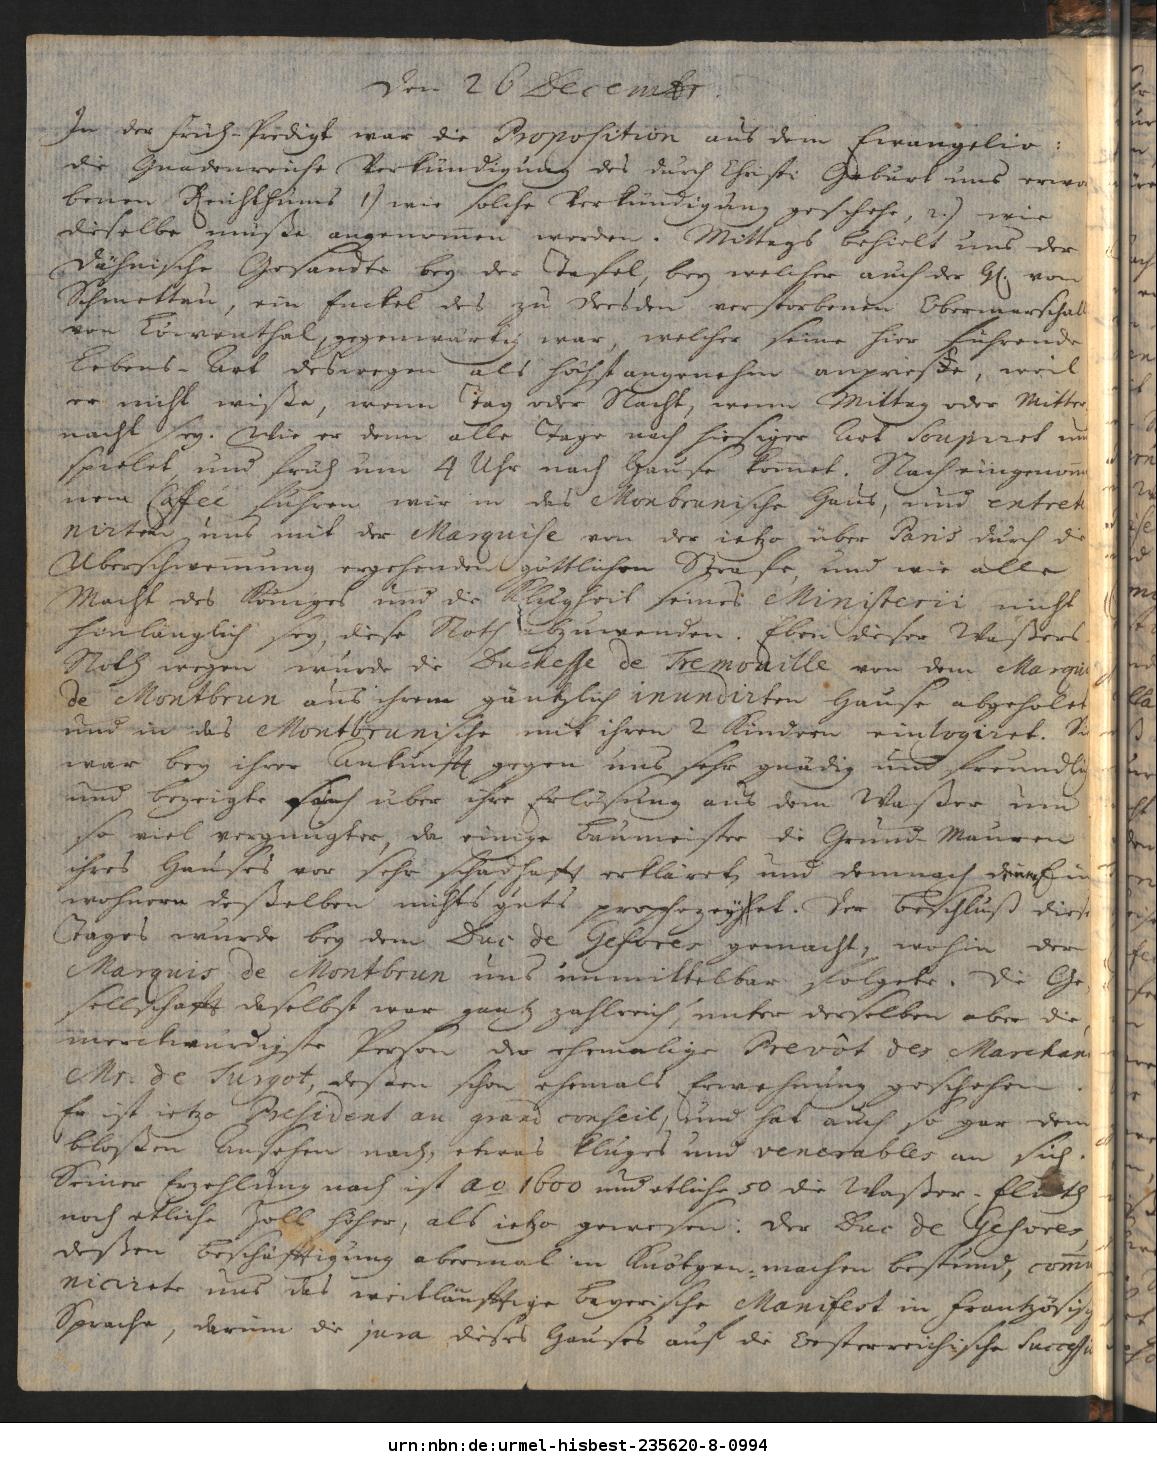 Den 26 Decembr.
In der Früh-Predigt war die Proposition aus dem Evangelio:
die Gnadenreiche Verkündigung des durch Christi Geburt uns erwor
benen Reichthums 1) wie solche Verkündigung geschehe, 2.) wie
dieselbe müße angenommen werden. Mittags behielt uns der
Dähnische Gesandte bey der Tafel, bey welcher auch der H. von
Schmettau, ein Enckel des zu Dresden verstorbenen Obermarschall
von Löwenthal, gegenwärtig war, welcher seine hier führende
Lebens-Art deswegen als höchst angenehm anpriese, weil
er nicht wiße, wenn Tag oder Nacht, wenn Mittag oder Mitter
nacht sey. Wie er denn alle Tage nach hiesiger Art soupiret und
spielet und früh um 4 Uhr nach Hause kommet. Nach eingenom
nem Caffée fuhren wir in das Monbrunische Haus, und entrete
nirten uns mit der Marquise von der ietzo über Paris durch die
Uberschwemmung ergehenden göttlichen Strafe, und wie alle
Macht des Königes und die Klugheit seines Ministerii nicht
hinlänglich sey, diese Noth abzuwenden. Eben dieser Waßers
Noth wegen wurde die Duchesse de Tremouille von dem Marquis
de Montbrun aus ihrem gäntzlich inundirten Hause abgeholet
und in das Montbrunische mit ihren 2 Kindern einlogiret. Sie
war bey ihrer Ankunfft gegen uns sehr gnädig und freundlich
und bezeigte sich über ihre Erlösung aus dem Waßer um
so viel vergnügter, da einige Baumeister die Grund-Mauren
ihres Hauses vor sehr schadhafft erkläret, und demnach denen Ein
wohnern deßelben nichts guts prophezeyhet. Der Beschluß dieses
Tages wurde bey dem Duc de Gesvres gemacht, wohin der
Marquis de Montbrun uns unmittelbar folgete. Die Ge
sellschafft daselbst war gantz zahlreich, unter derselben aber die
merckwürdigste Person der ehemalige Prevôt des Marchands
Mr. de Turgot, deßen schon ehemals Erwehnung geschehen.
Er ist ietzo President au grand conseil, und hat auch so gar dem
bloßen Ansehen nach, etwas kluges und venerables an sich.
Seiner Erzehlung nach ist ao 1600 und etliche 50 die Waßer-Fluth
noch etliche Zoll höher, als ietzo gewesen: Der Duc de Gesvres,
deßen Beschäfftigung abermal in Knötgen-machen bestund, commu
nicirte uns das weitläufftige Bayerische Manifest in Frantzösisch
Sprache, darinn die jura dieses Hauses auf die Oesterreichische Success
urn:nbn:de:urmel-hisbest-235620-8-0994